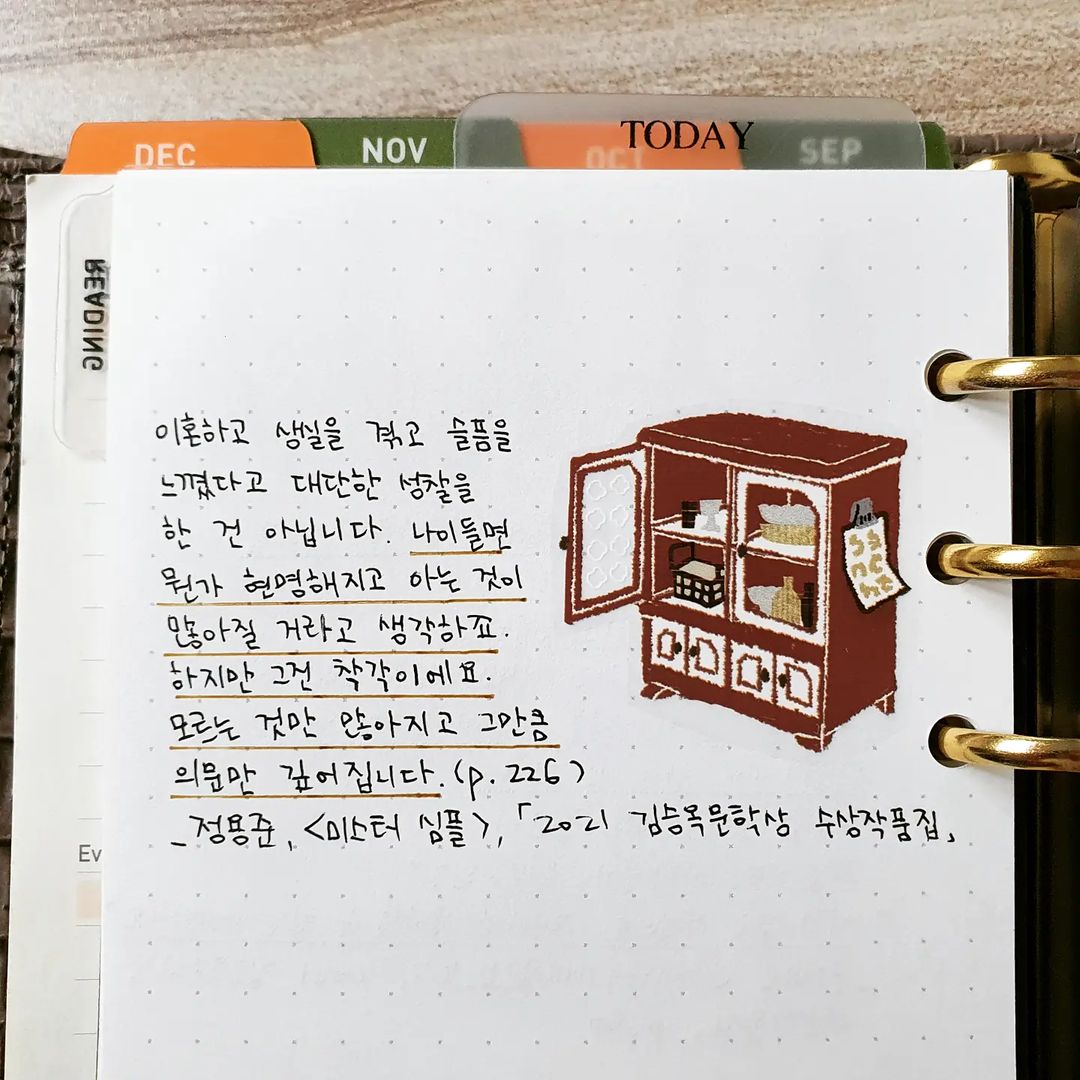 DEC
NOV
TODAY
OCT
SEP
READING
이혼하고 상실을 겪고 슬픔을
느꼈다고 대단한 성찰을
한 건 아닙니다. 나이들면
뭔가 현명해지고 아는 것이
많아질 거라고 생각하죠.
하지만 그건 착각이에요.
모르는 것만 많아지고 그만큼
의문만 깊어집니다. (p. 226)
_정용준, <미스터 심플>, 「2021 김승옥문학상 수상작품집」
Ev